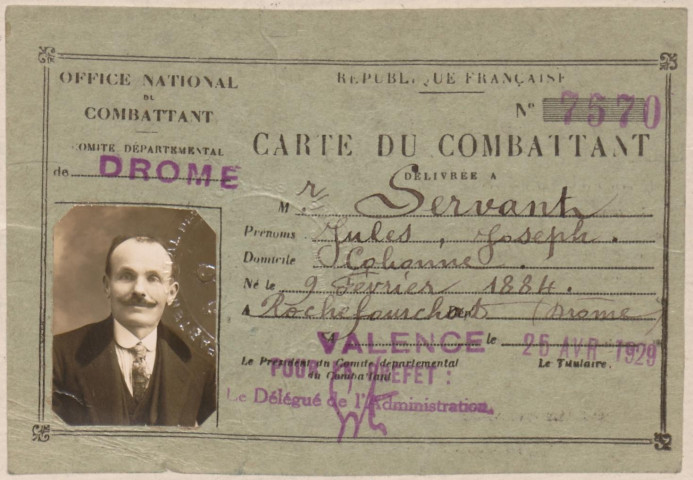 OFFICE NATIONAL
DU
COMBATTANT
COMITÉ DÉPARTEMENTAL
de DROME
RÉPUBLIQUE FRANÇAISE
N° 7570
CARTE DU COMBATTANT
DÉLIVRÉE A
Mr Servant
Prénoms Jules, Joseph.
Domicile
Né le 9 Février 1884.
A Rochefourchat (Drome)
VALENCE le 26 AVR 1929
Le Président du Comité départemental
du Combattant
Le Titulaire.
POUR LE PREFET :
Le Délégué de l'Administration.